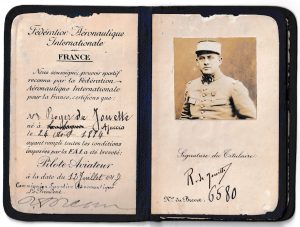 Fédération Aéronautique
Internationale
FRANCE
Nous soussignés pouvoir sportif
reconnu par la Fédération
Aéronautique Internationale
pour la France, certifions que:
Roger de
né à Ajaccio
le 24 1884
ayant rempli toutes les conditions
imposées par la F.A.I. a été breveté:
Pilote-Aviateur
à la date du 12 Juillet
Commission Sportive Aéronautique
Le Président
Signature du Titulaire
R. de
No du Brevet: 6580